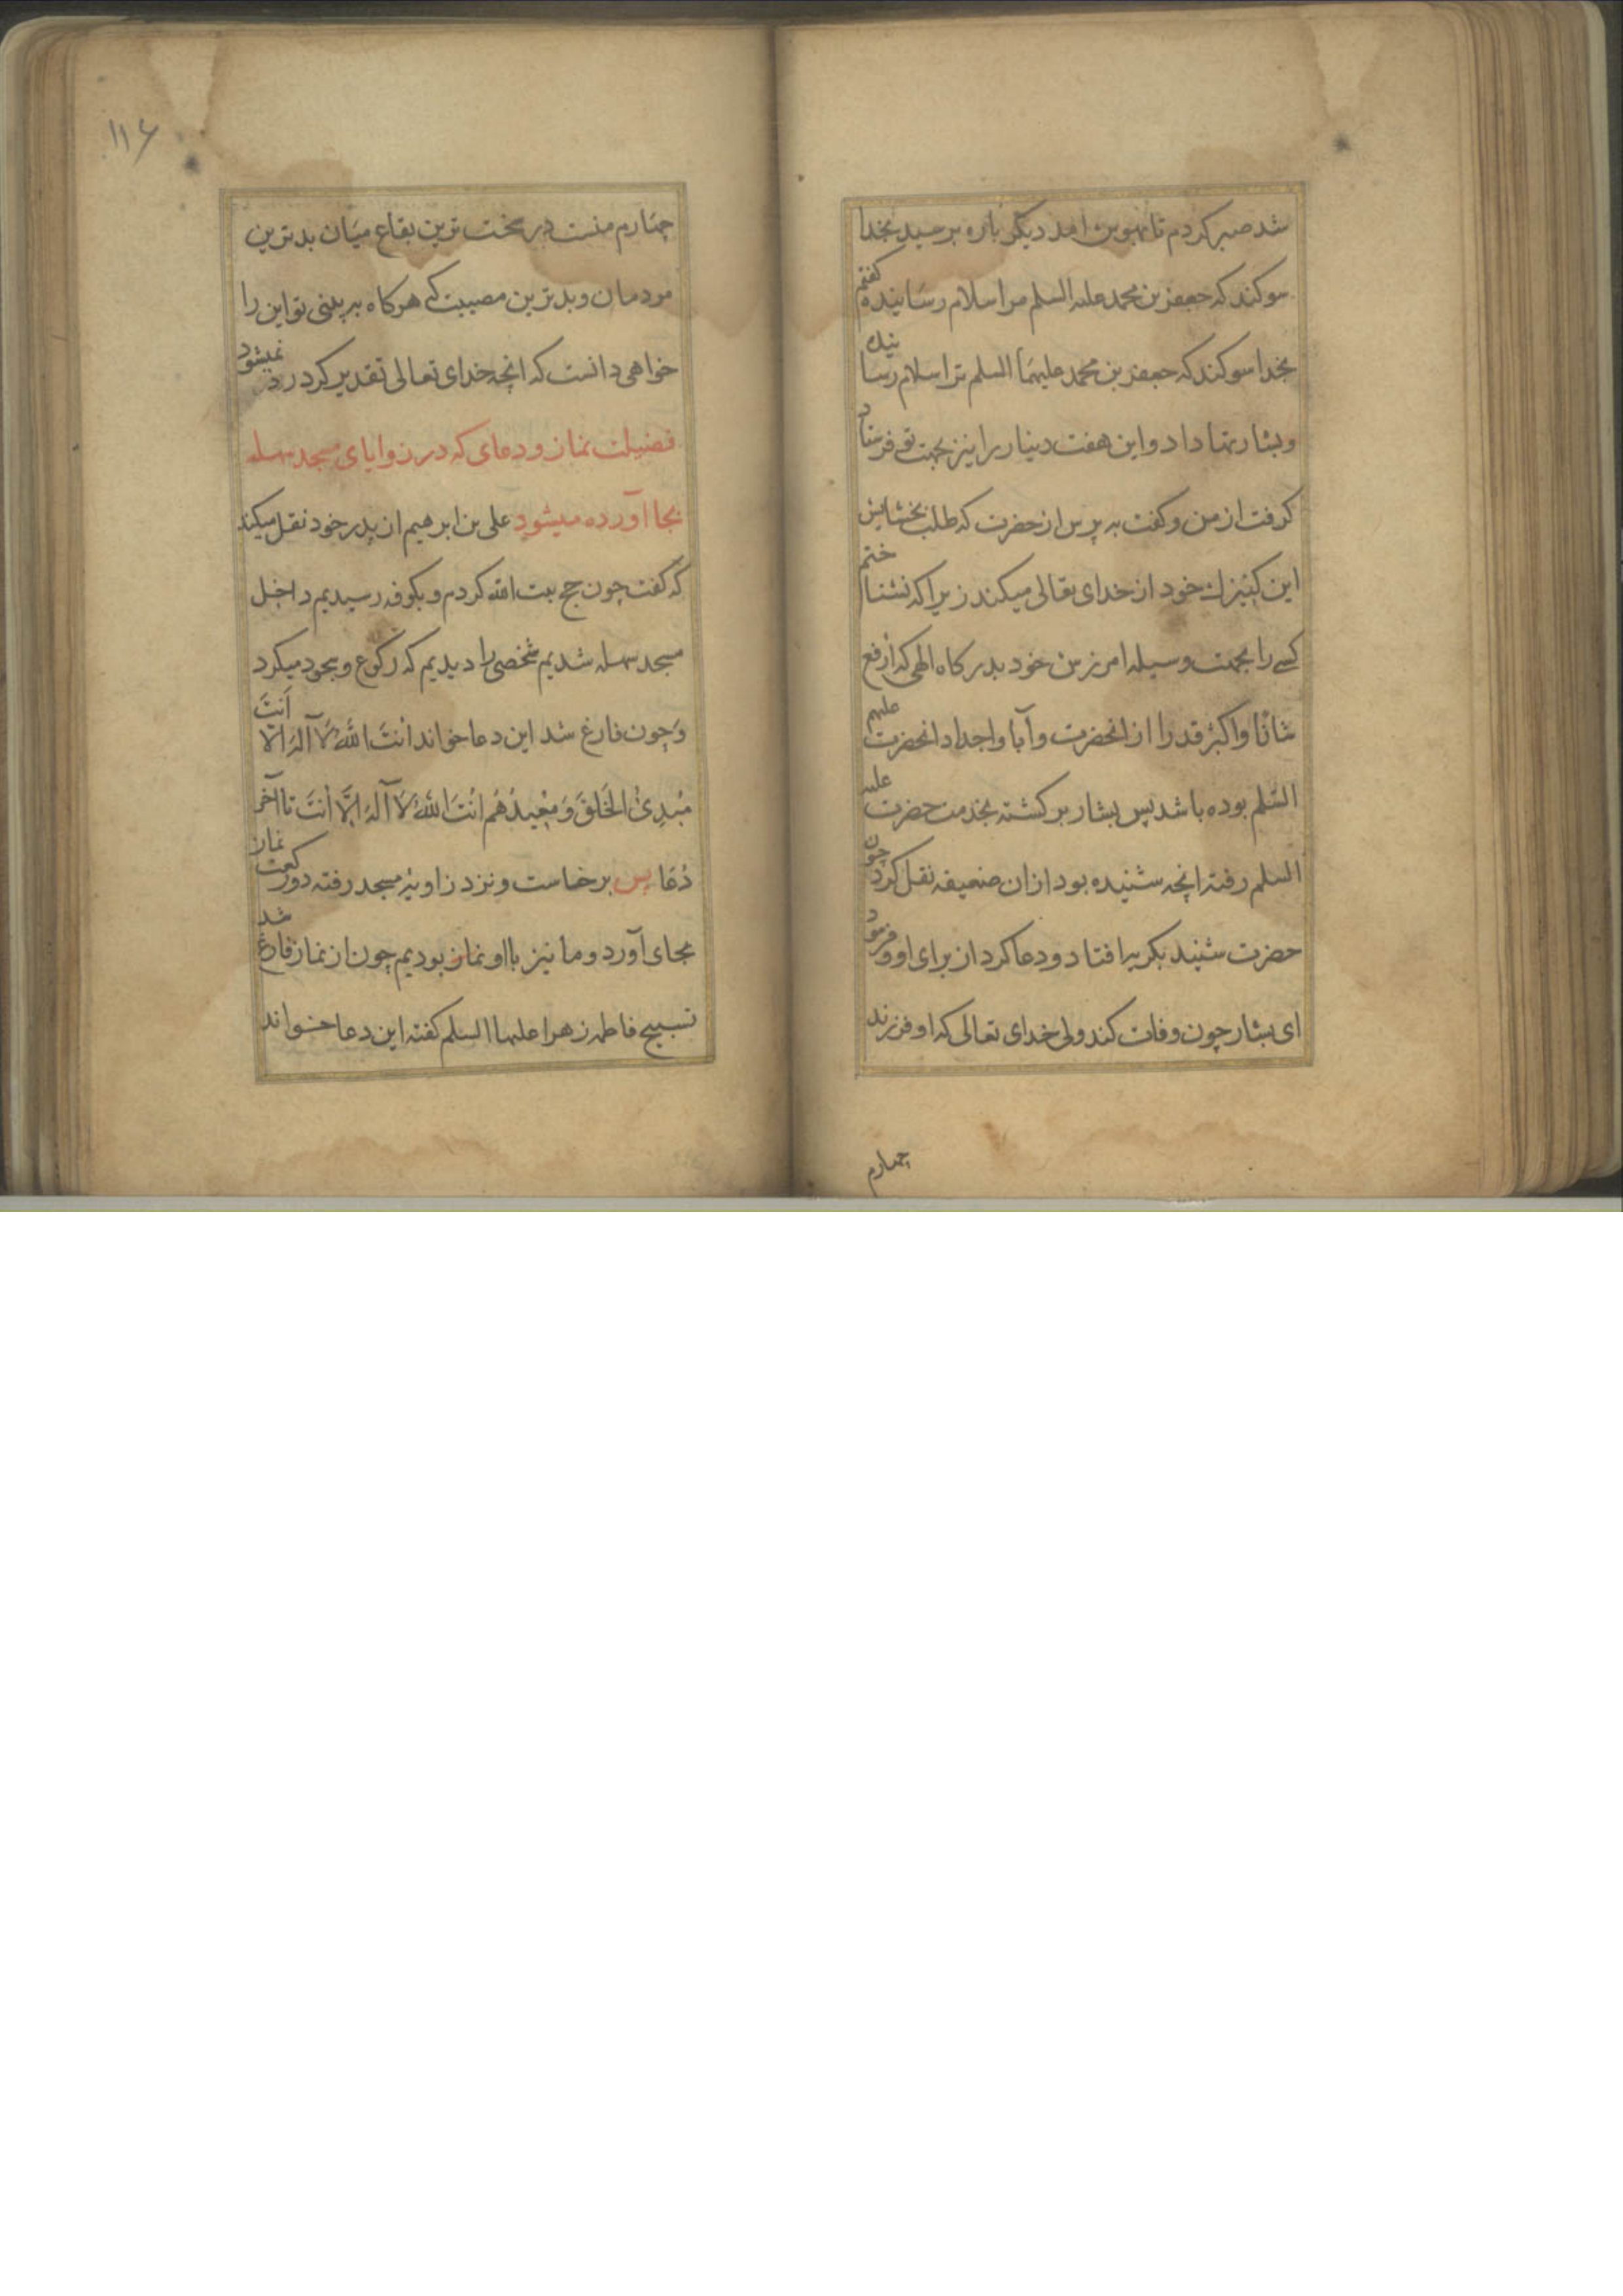 شد صبر کردم تا بهوش امد دیکر باره پرسید بخدا
سوکند که جعفر بن محمد علیه السلم مرا سلام رسانیده کفتم
بخدا سوکند که جعفر بن محمد علیهما السلم ترا سلام رسا نیده
و بشارتها داد و این هفت دینار را نیز بجهت تو فرستاد
کرفت از من و کفت به پرس از حضرت که طلب بخشایش
این کنیزك خود از خدای تعالی میکند زیرا که نشنا ختم
کسے را بجهت وسیله امرزش خود بدرکاه الهی که ارفع
شانًا و اکبرُ قدرا از انحضرت و آبا و اجداد انحضرت علیهم
السّلم بوده باشد پس بشار برکشته بخدمت حضرت علیه
السلم رفته انچه شنیده بود از ان ضعیفه نقل کرد چون
حضرت شنید بکریه افتاد و دعا کرد از برای او و فرمود
ای بشار چون وفات کند ولی خدای تعالی که او فرزند
چهارم
۱۱۶
چهارم منست در سخت ترین بقاع میان بدترین
مردمان و بدترین مصیبت کے هرکاه به بینی تو این را
خواهی دانست که انچه خدای تعالی تقدیر کرد رد نمیشود
فضیلت نماز و دعای که در زوایای مسجد سهله
بجا آورده میشود علی بن ابرهیم از پدر خود نقل میکند
که کفت چون حج بیت الله کردم و بکوفه رسیدیم داخل
مسجد سهله شدیم شخصی را دیدیم که رکوع و سجود میکرد
وَ چون فارغ شد این دعا خواند انتَ اللهُ لَا آلهَ الّا اَنتَ
مُبْدِئُ الخَلقَ وَ مُعِیدُهُم انْتَ اللهُ لَا آلهَ اِلَّا اَنتَ تا آخر
دُعَا پس برخاست و نزد زاویهٔ مسجد رفته دو رکعت نماز
بجای آورد و ما نیز با او نماز بودیم چون از نماز فارغ شد
تسبیح فاطمه زهرا علیها السلم کفته این دعا خواند